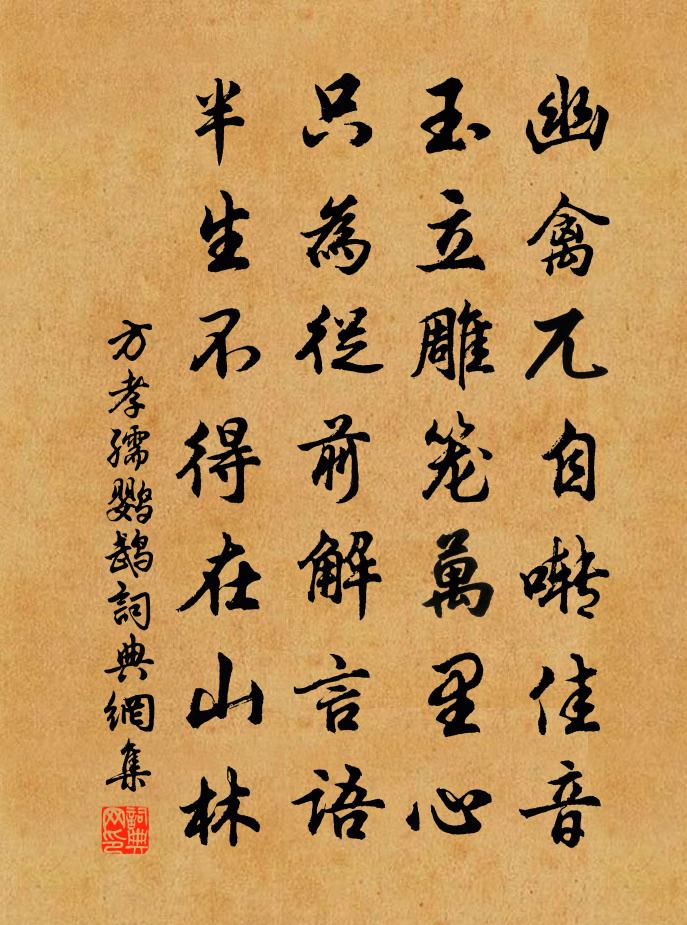 幽禽兀自啭佳音
玉立雕笼萬里心
只為從前解言語
半生不得在山林
方孝孺鹦鹉詞典網集
詞典网印